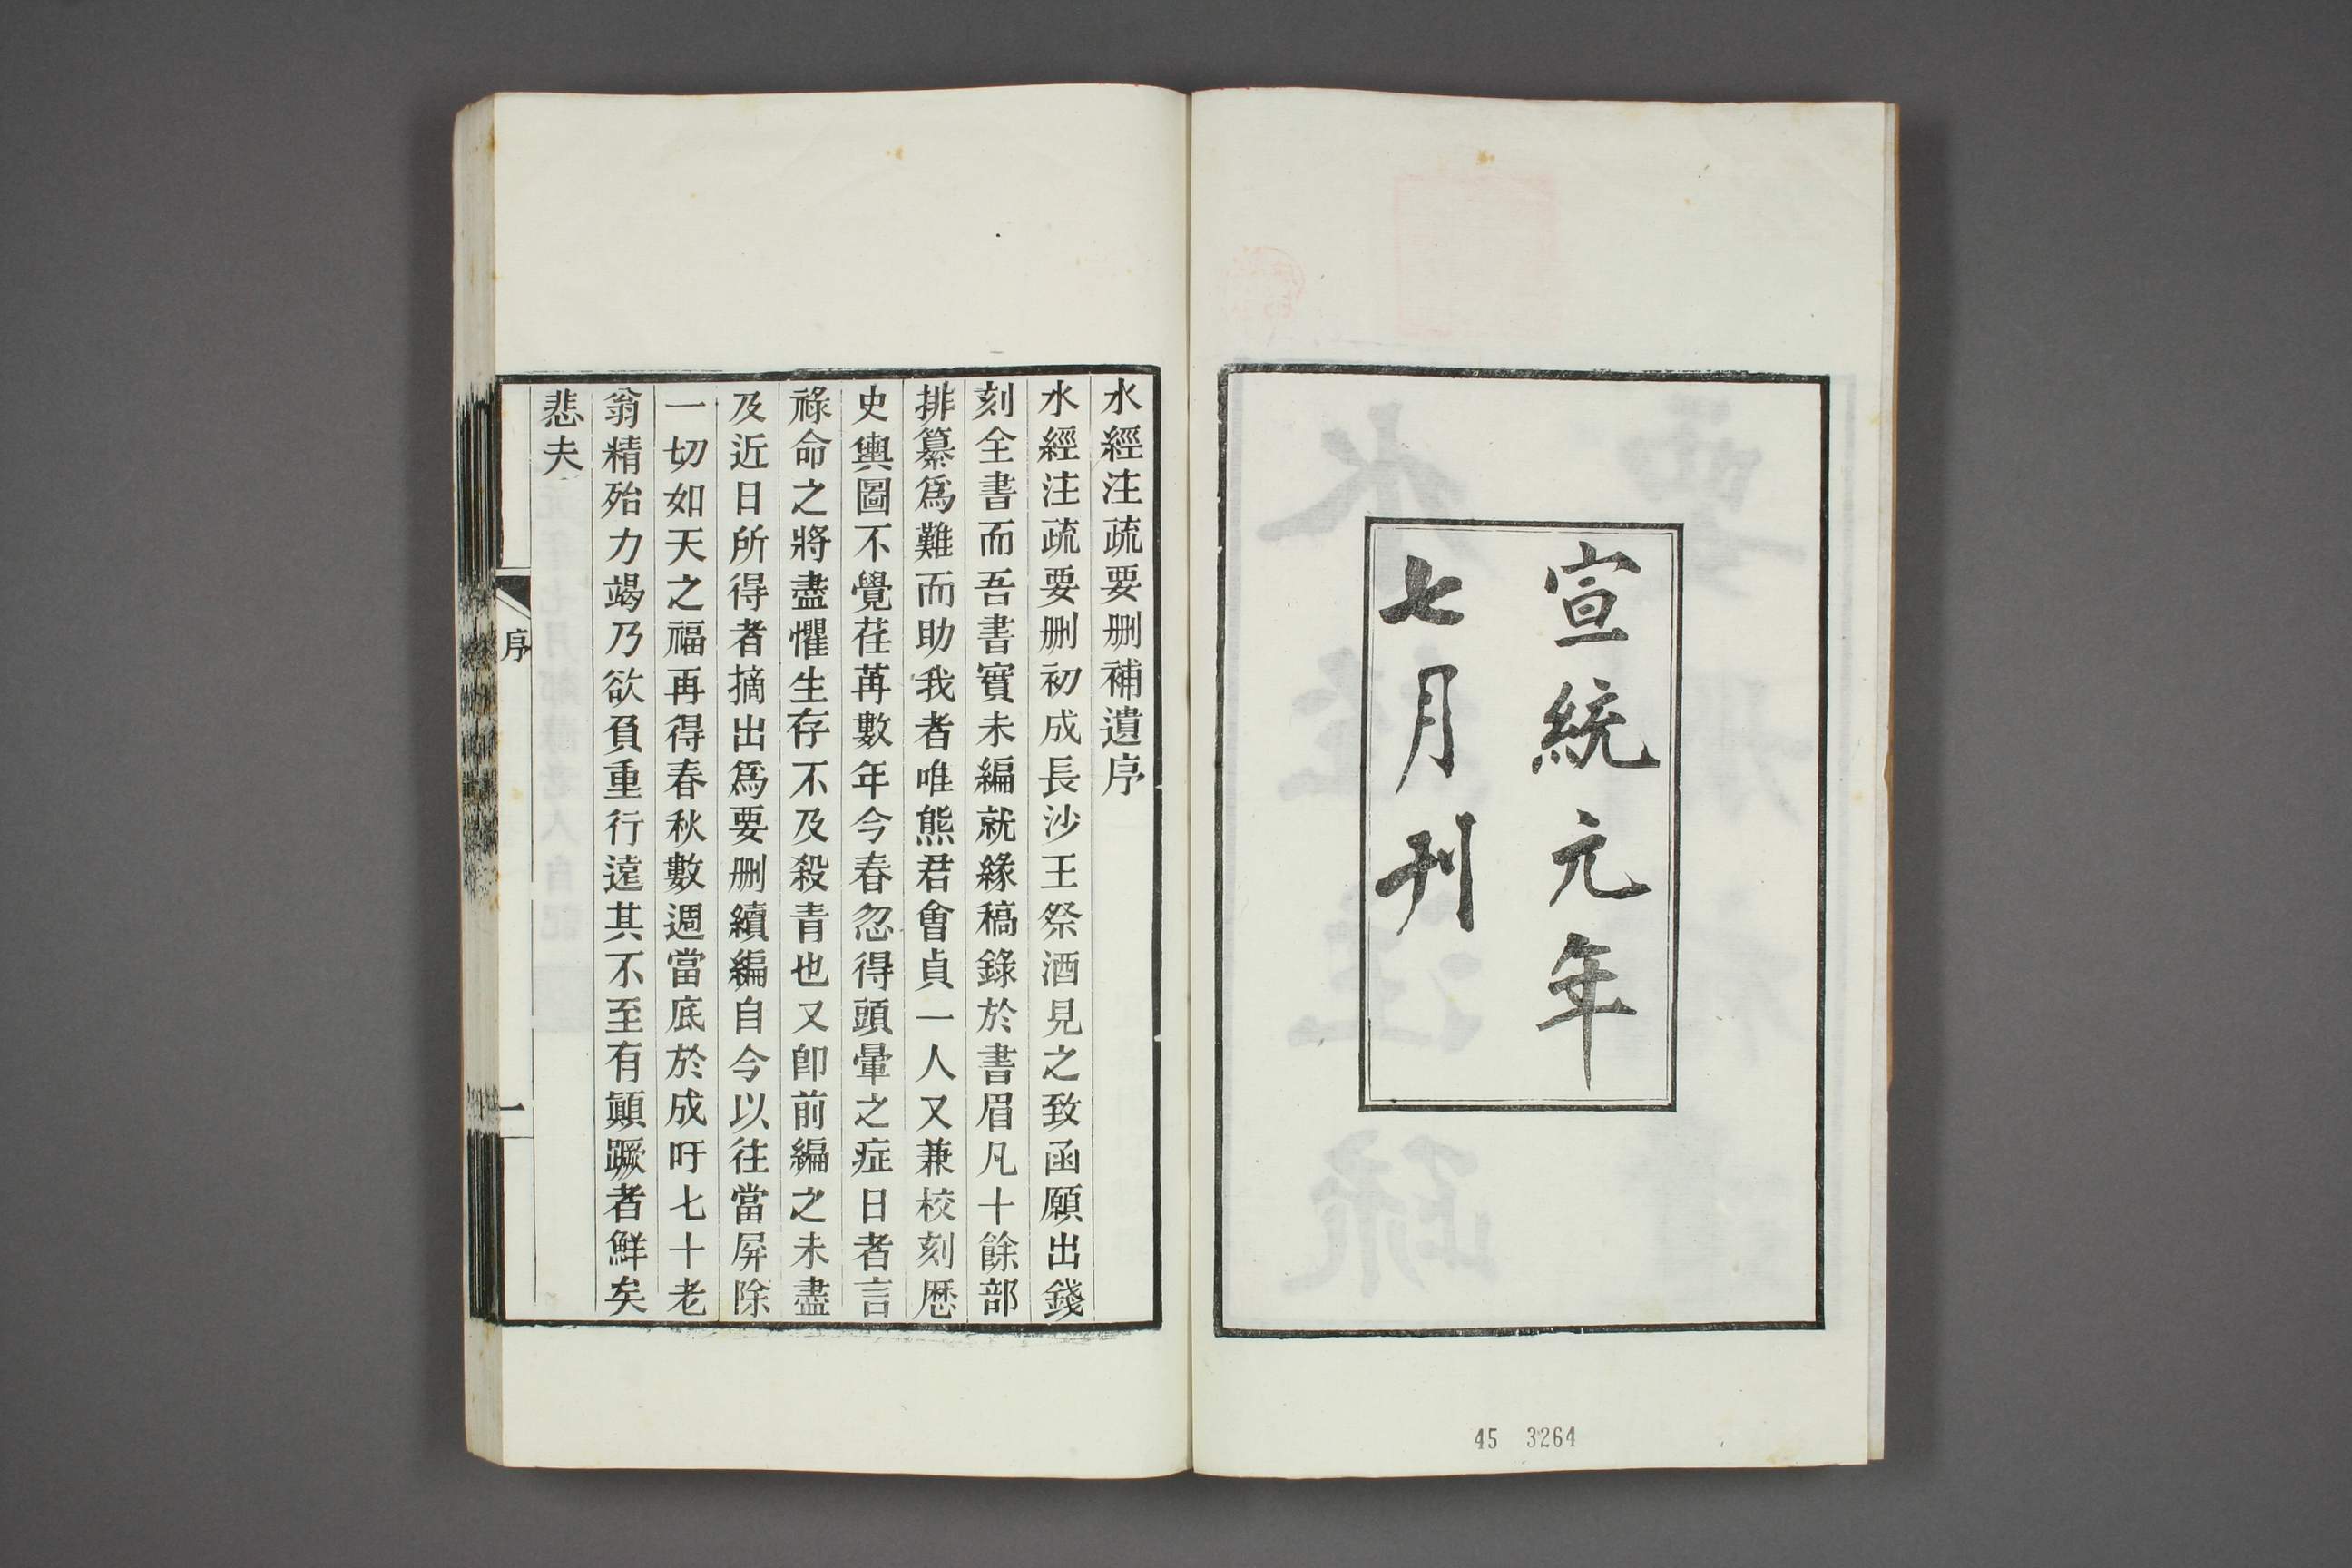 宣統元年
七月刊
45 3264
水經注疏要刪補遺序
水經注疏要刪初成長沙王祭酒見之致函願出錢
刻全書而吾書實未編就緣稿錄於書眉凡十餘部
排纂爲難而助我者唯熊君會貞一人又兼校刻歷
史輿圖不覺荏苒數年今春忽得頭暈之症日者言
祿命之將盡懼生存不及殺青也又卽前編之未盡
及近日所得者摘出爲要刪續編自今以往當屏除
一切如天之福再得春秋數週當底於成吁七十老
翁精殆力竭乃欲負重行遠其不至有顚蹶者鮮矣
悲夫
序
一